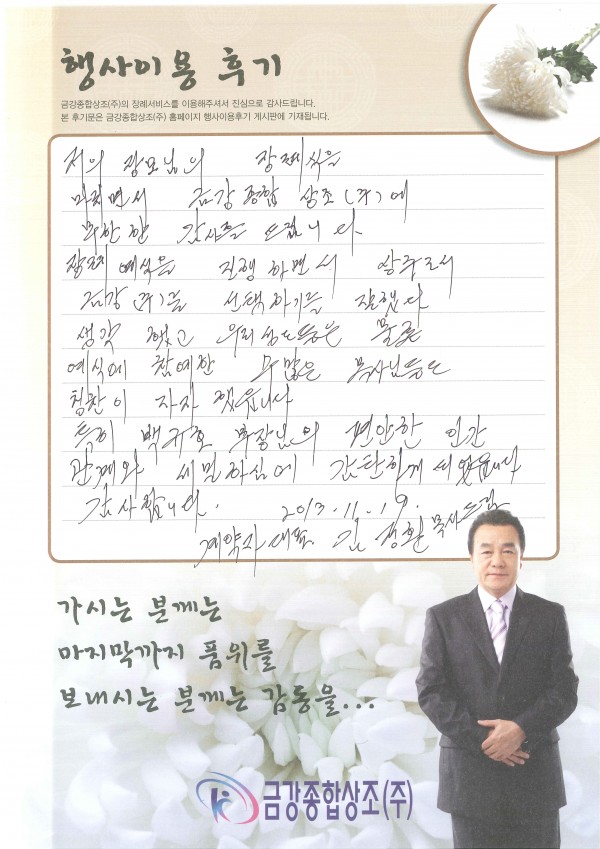 행사이용 후기
금강종합상조(주)의 장례서비스를 이용해주셔서 진심으로 감사드립니다.
본 후기문은 금강종합상조(주) 홈페이지 행사이용후기 게시판에 기재됩니다.
저의 장모님의 장례식을
마치면서 금강종합 상조(주)에
무한한 감사를 드립니다.
장례 예식을 진행하면서 상주로서
금강(주)를 선택하기를 잘했다
생각 했고 우리 성도들은 물론
예식에 참예한 수많은 목사님들도
칭찬이 자자 했읍니다
특히 백귀호 부장님의 편안한 인간
관계와 세밀하심에 감탄하게 되었읍니다
감사합니다. 2013.11.19.
계약자 대표 김 목사드림
가시는 분께는
마지막까지 품위를
보내시는 분께는 감동을...
금강종합상조(주)